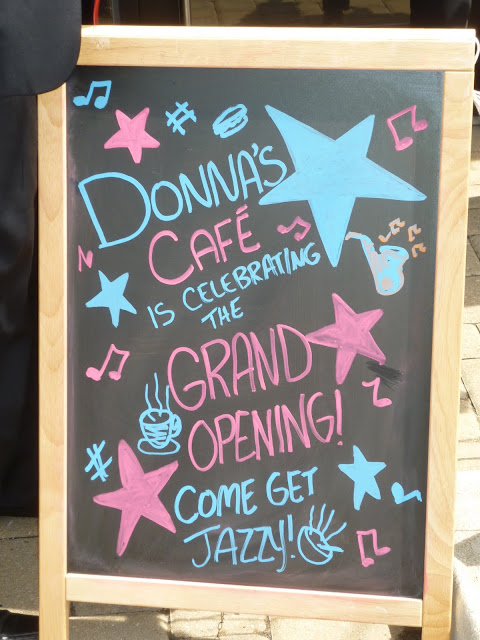 DONNA'S
CAFÉ
IS CELEBRATING
THE
GRAND
OPENING!
COME GET
JAZZY!